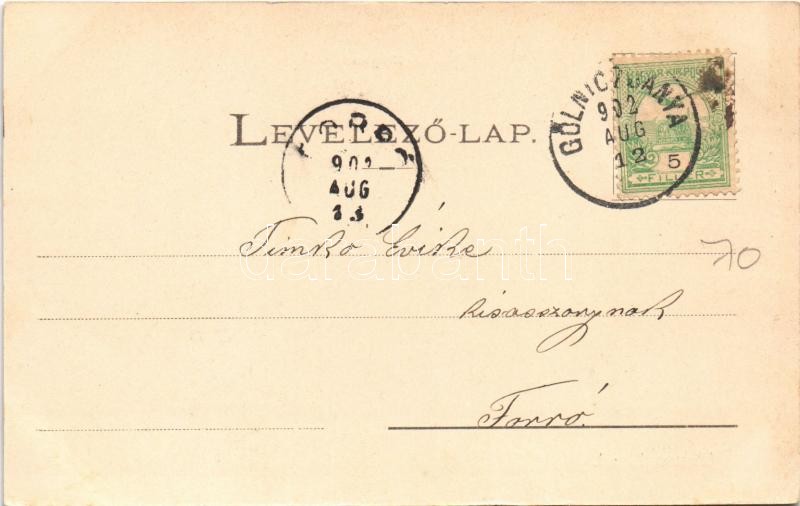 LEVELEZŐ-LAP.
GÖLNICZBÁNYA
902
AUG
12
MAGYAR KIR. POSTA
5
FILLÉR
902
AUG
13
Timkó Evike
70
kisasszonynak
Forró.
darabanth